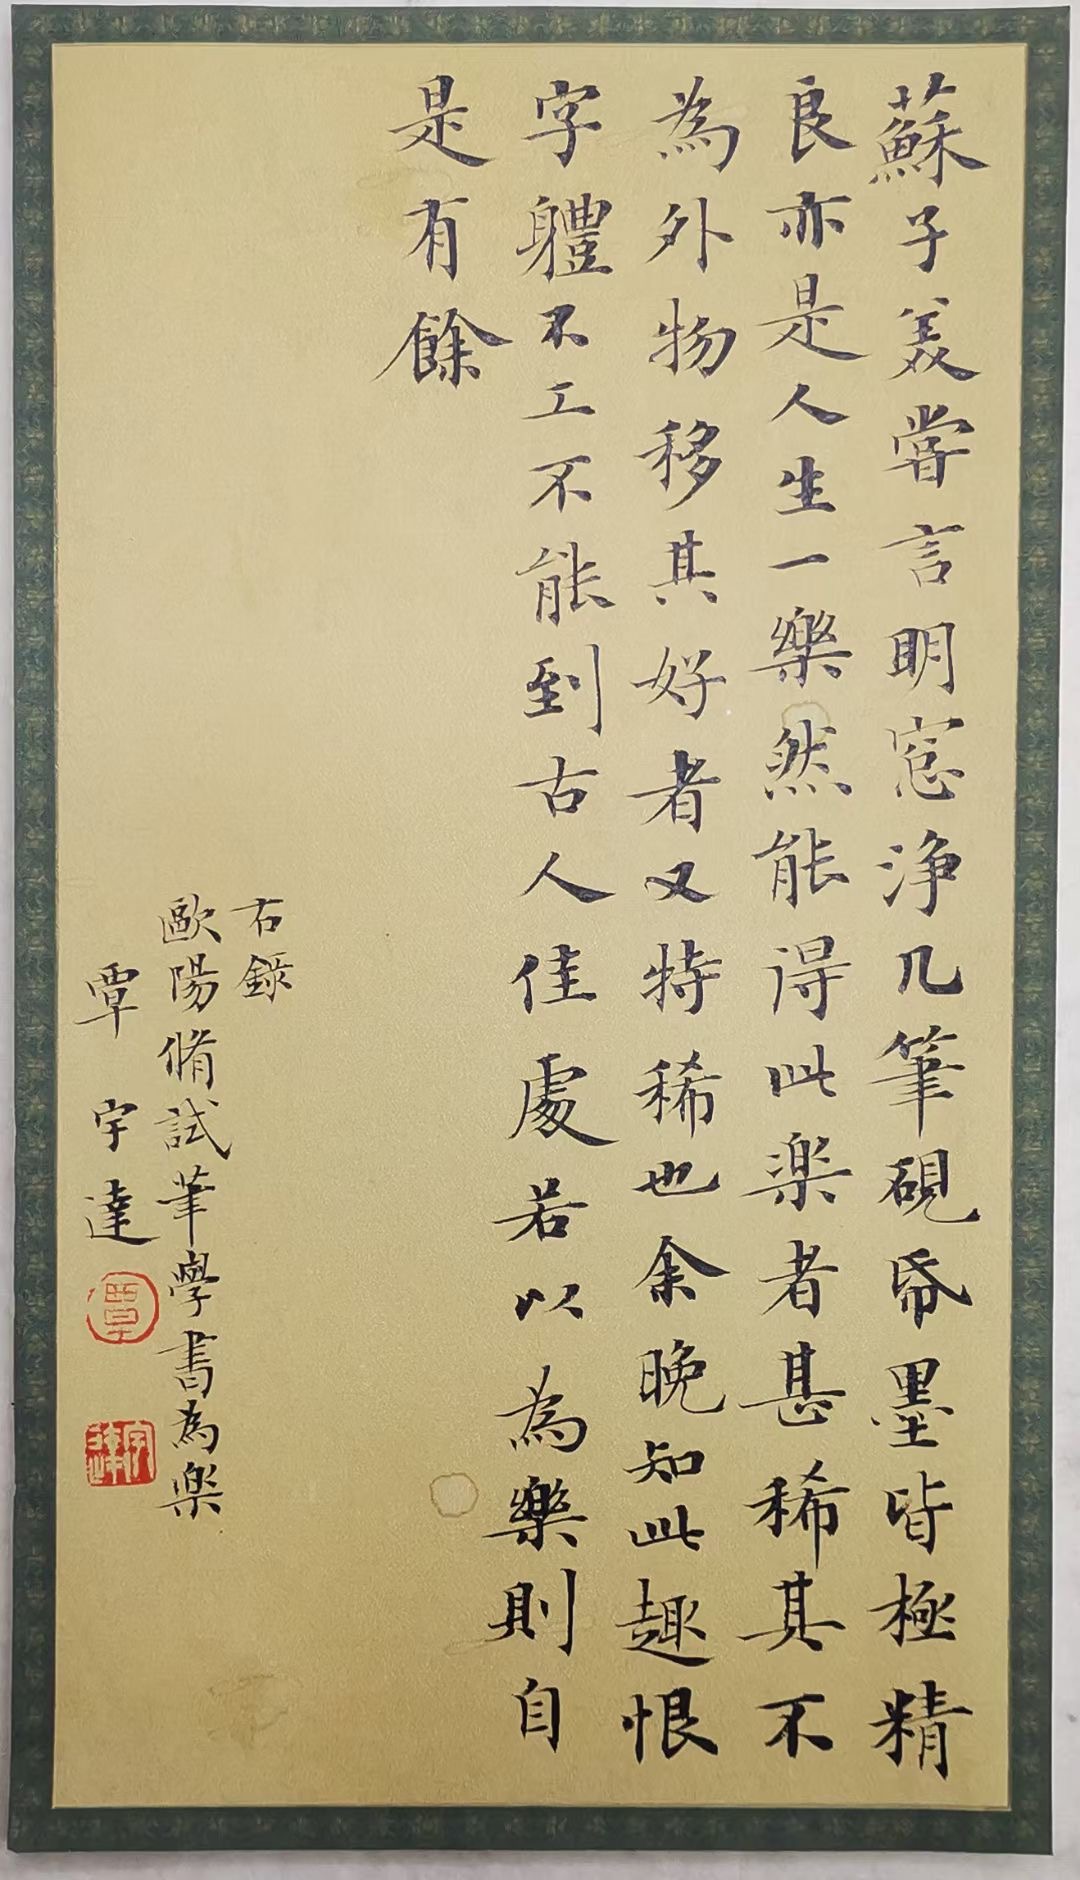 蘇子美嘗言明窓浄几筆硯帋墨皆極精
良亦是人生一樂然能得此楽者甚稀其不
為外物移其好者又特稀也余晚知此趣恨
字軆不工不能到古人佳處若以為樂則自
是有餘
右錄
歐陽脩試筆學書為楽
覃宇達
覃
宇達